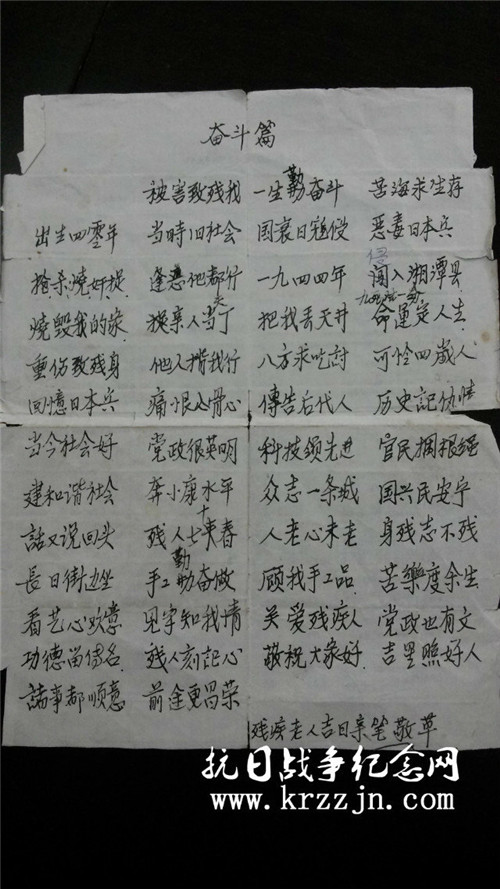 奋斗篇
被害致残我 一生勤奋斗 苦海求生存
出生四零年 当时旧社会 国衰日寇侵 恶毒日本兵
侵
抢杀烧奸捉 逢恶他都行 一九四四年 闯入湘潭县
烧毁我的家 失 亲人 丁 把我丢天井 命運定人生
重伤致残身 他人揹我行 八方求吃討 可怜四歲人
回憶日本兵 痛恨心骨心 傳告后代人 历史記仇情
当今社会好 党政很英明 科技领先进 官民捆根绳
建和谐社会 奔小康水平 众志一条城 国兴民安宁
話又说回头 残人七十来春 人老心未老 身残志不残
長日街边坐 手工勤奋做 顾我手工品 苦樂度余生
看艺心欢意 见字知我情 关爱残疾人 党政也有文
功德留传名 残人刻記心 敬祝大家好 吉星照好人
諸事都顺意 前途更昌荣
残疾老人吉日亲笔敬草
抗日战争纪念网
www.krzzjn.com